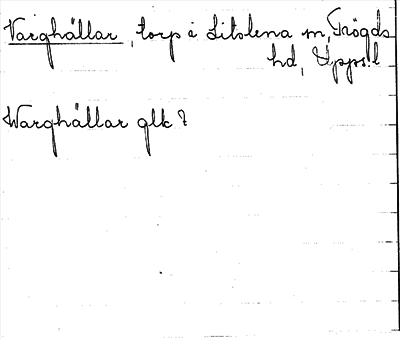 Varghällar, torp å Litslena m, Trögds
hd, Upps. l
Warghällar glk?